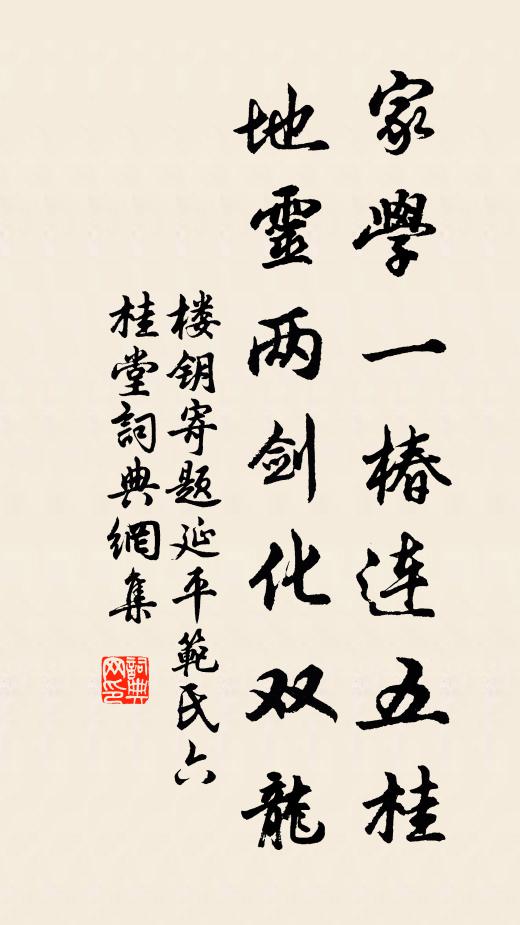 家學一椿連五桂
地靈两剑化双龍
楼钥寄题延平範民六
桂堂詞典網集
詞典网印